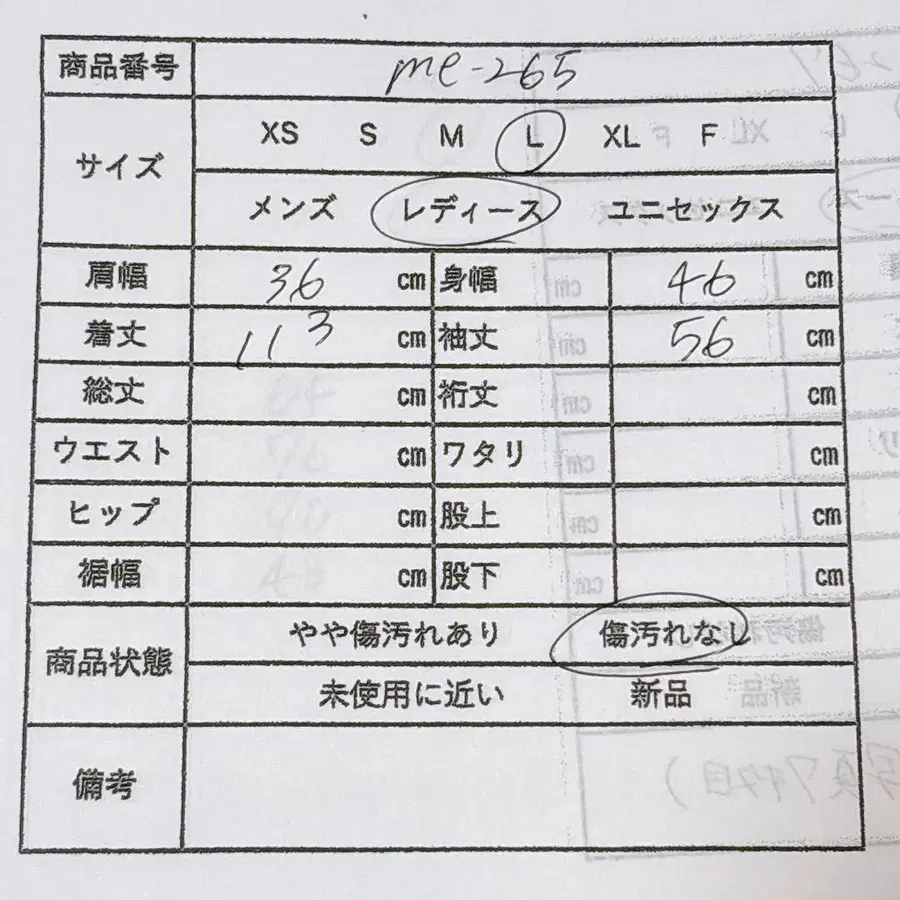 商品番号 me-265
サイズ XS S M L XL F
メンズ レディース ユニセックス
肩幅 36 cm 身幅 46 cm
着丈 113 cm 袖丈 56 cm
総丈 cm 裄丈 cm
ウエスト cm ワタリ cm
ヒップ cm 股上 cm
裾幅 cm 股下 cm
商品状態 やや傷汚れあり 傷汚れなし
未使用に近い 新品
備考